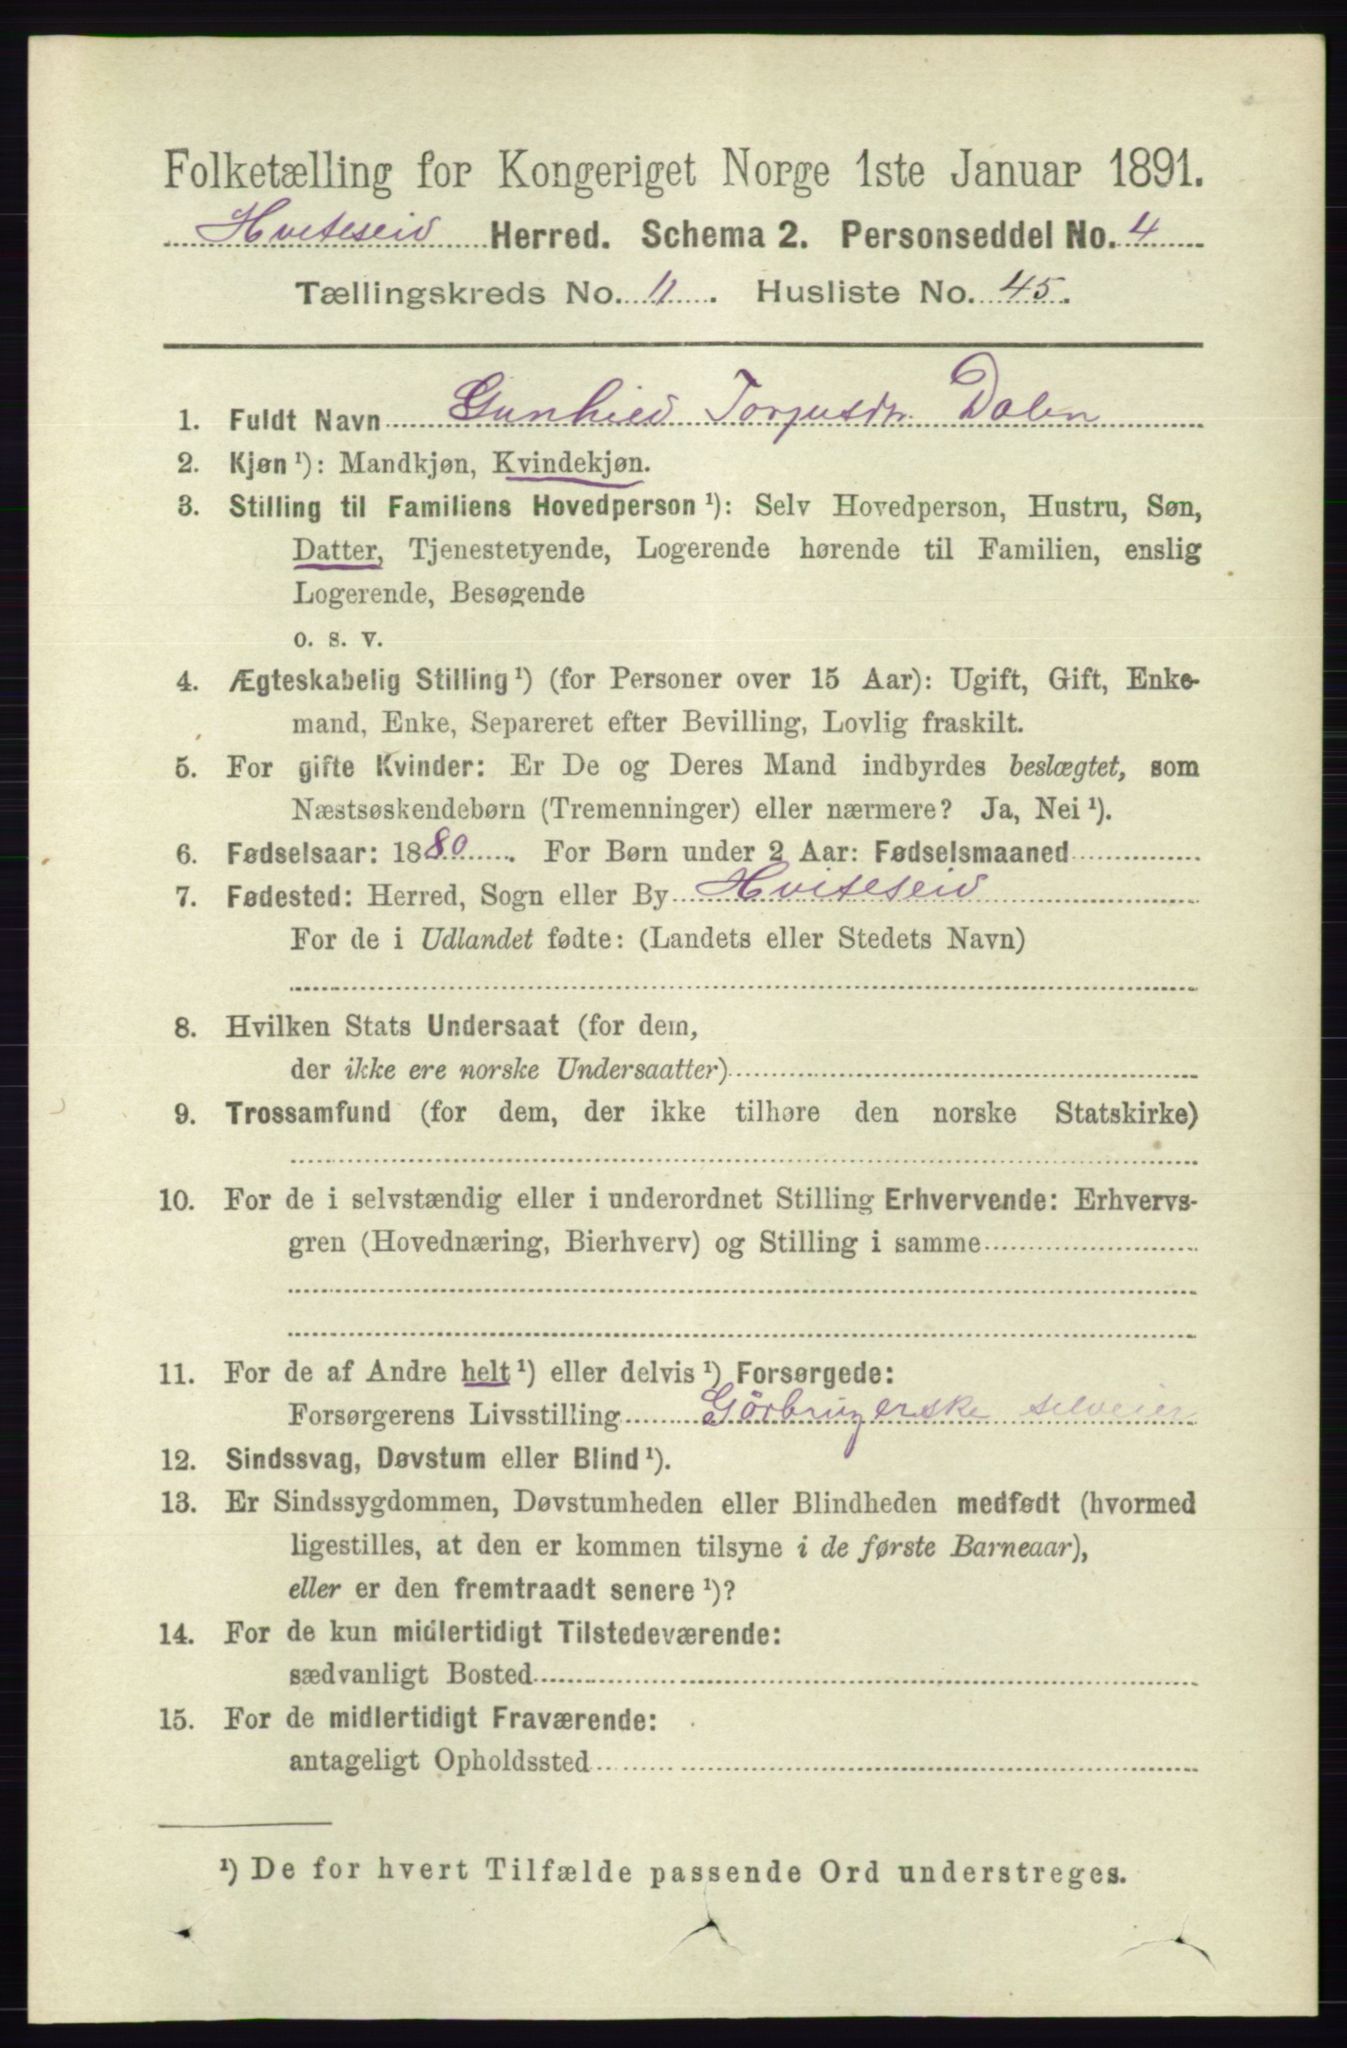 Folketælling for Kongeriget Norge 1ste Januar 1891.
Hviteseid Herred. Schema 2. Personseddel No. 4
Tællingskreds No. 11. Husliste No. 45.
1. Fuldt Navn Gunhild Torjusdr. Dalen
2. Kjøn ¹): Mandkjøn, Kvindekjøn.
3. Stilling til Familiens Hovedperson ¹): Selv Hovedperson, Hustru, Søn,
Datter, Tjenestetyende, Logerende hørende til Familien, enslig
Logerende, Besøgende
o. s. v.
4. Ægteskabelig Stilling ¹) (for Personer over 15 Aar): Ugift, Gift, Enke-
mand, Enke, Separeret efter Bevilling, Lovlig fraskilt.
5. For gifte Kvinder: Er De og Deres Mand indbyrdes beslægtet, som
Næstsøskendebørn (Tremenninger) eller nærmere? Ja, Nei ¹).
6. Fødselsaar: 1880. For Børn under 2 Aar: Fødselsmaaned
7. Fødested: Herred, Sogn eller By Hviteseid
For de i Udlandet fødte: (Landets eller Stedets Navn)
8. Hvilken Stats Undersaat (for dem,
der ikke ere norske Undersaatter)
9. Trossamfund (for dem, der ikke tilhøre den norske Statskirke)
10. For de i selvstændig eller i underordnet Stilling Erhvervende: Erhvervs-
gren (Hovednæring, Bierhverv) og Stilling i samme
11. For de af Andre helt ¹) eller delvis ¹) Forsørgede:
Forsørgerens Livsstilling Gårbrugerske selveier
12. Sindssvag, Døvstum eller Blind ¹).
13. Er Sindssygdommen, Døvstumheden eller Blindheden medfødt (hvormed
ligestilles, at den er kommen tilsyne i de første Barneaar),
eller er den fremtraadt senere ¹)?
14. For de kun midlertidigt Tilstedeværende:
sædvanligt Bosted
15. For de midlertidigt Fraværende:
antageligt Opholdssted
¹) De for hvert Tilfælde passende Ord understreges.